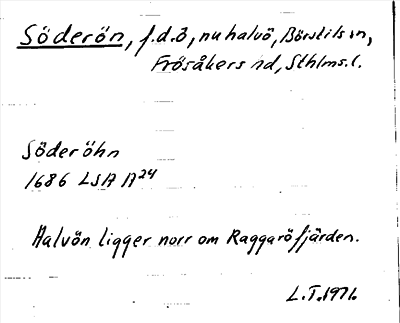 Söderön, f.d.ö, nu halvö, Börstils sn,
Frösåkers hd, Sthlms.l.
Söderöhn
1686 LSA A24
Halvön ligger norr om Raggaröfjärden.
L.T.1971.